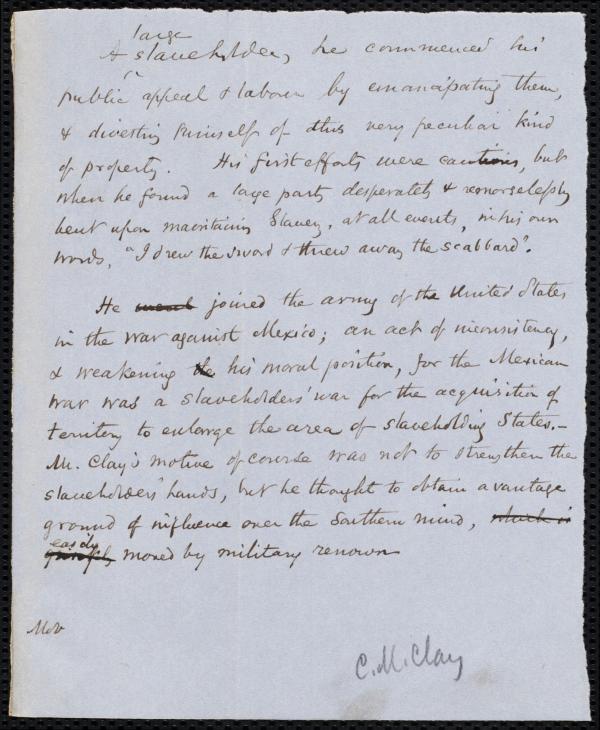 large
A slaveholder, he commenced his
public appeal & labour by emancipating them,
& divesting himself of this very peculiar kind
of property. His first efforts were cautious, but
when he found a large party desperately & remorselessly
bent upon maintaining Slavery, at all events, in his own
words, "I drew the sword & threw away the scabbard".
He joined the army of the United States
in the war against Mexico; an act of inconsistency,
& weakening the his moral position, for the Mexican
war was a slaveholders' war for the acquisition of
territory to enlarge the area of slaveholding States.-
Mr. Clay's motive of course was not to strengthen the
slaveholders' hands, but he thought to obtain a vantage
ground of influence over the Southern mind, which is
easily
moved by military renown
C. M. Clay